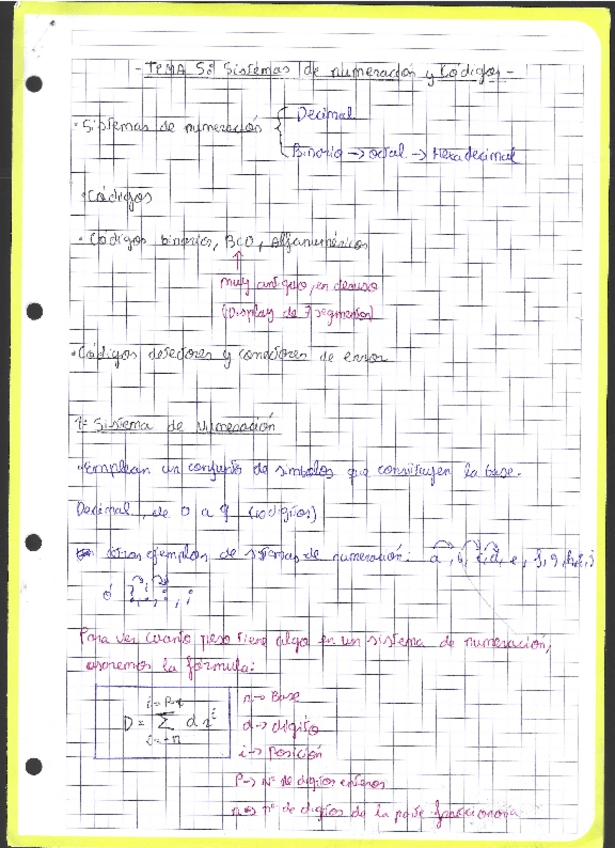 - TEMA 5: Sistemas de numeración y Códigos -
· Sistemas de numeración { Decimal
Binario → octal → Hexadecimal
· Códigos
· Códigos binarios, BCD, Alfanuméricos
↑
muy antiguo, en desuso
(Display de 7 segmentos)
· Códigos detectores y correctores de error
1= Sistema de Numeración
· Emplean un conjunto de símbolos que constituyen la base.
Decimal, de 0 a 9 (10 dígitos)
otros ejemplos de sistemas de numeración: a, b, c, d, e, f, g, h, i, j
ó
Para ver cuanto peso tiene algo en un sistema de numeración,
usaremos la fórmula:
i=P-1
D= Σ d r^i
i=-n
r → Base
d → dígito
i → Posición
P → Nº de dígitos enteros
n → nº de dígitos de la parte fraccionaria